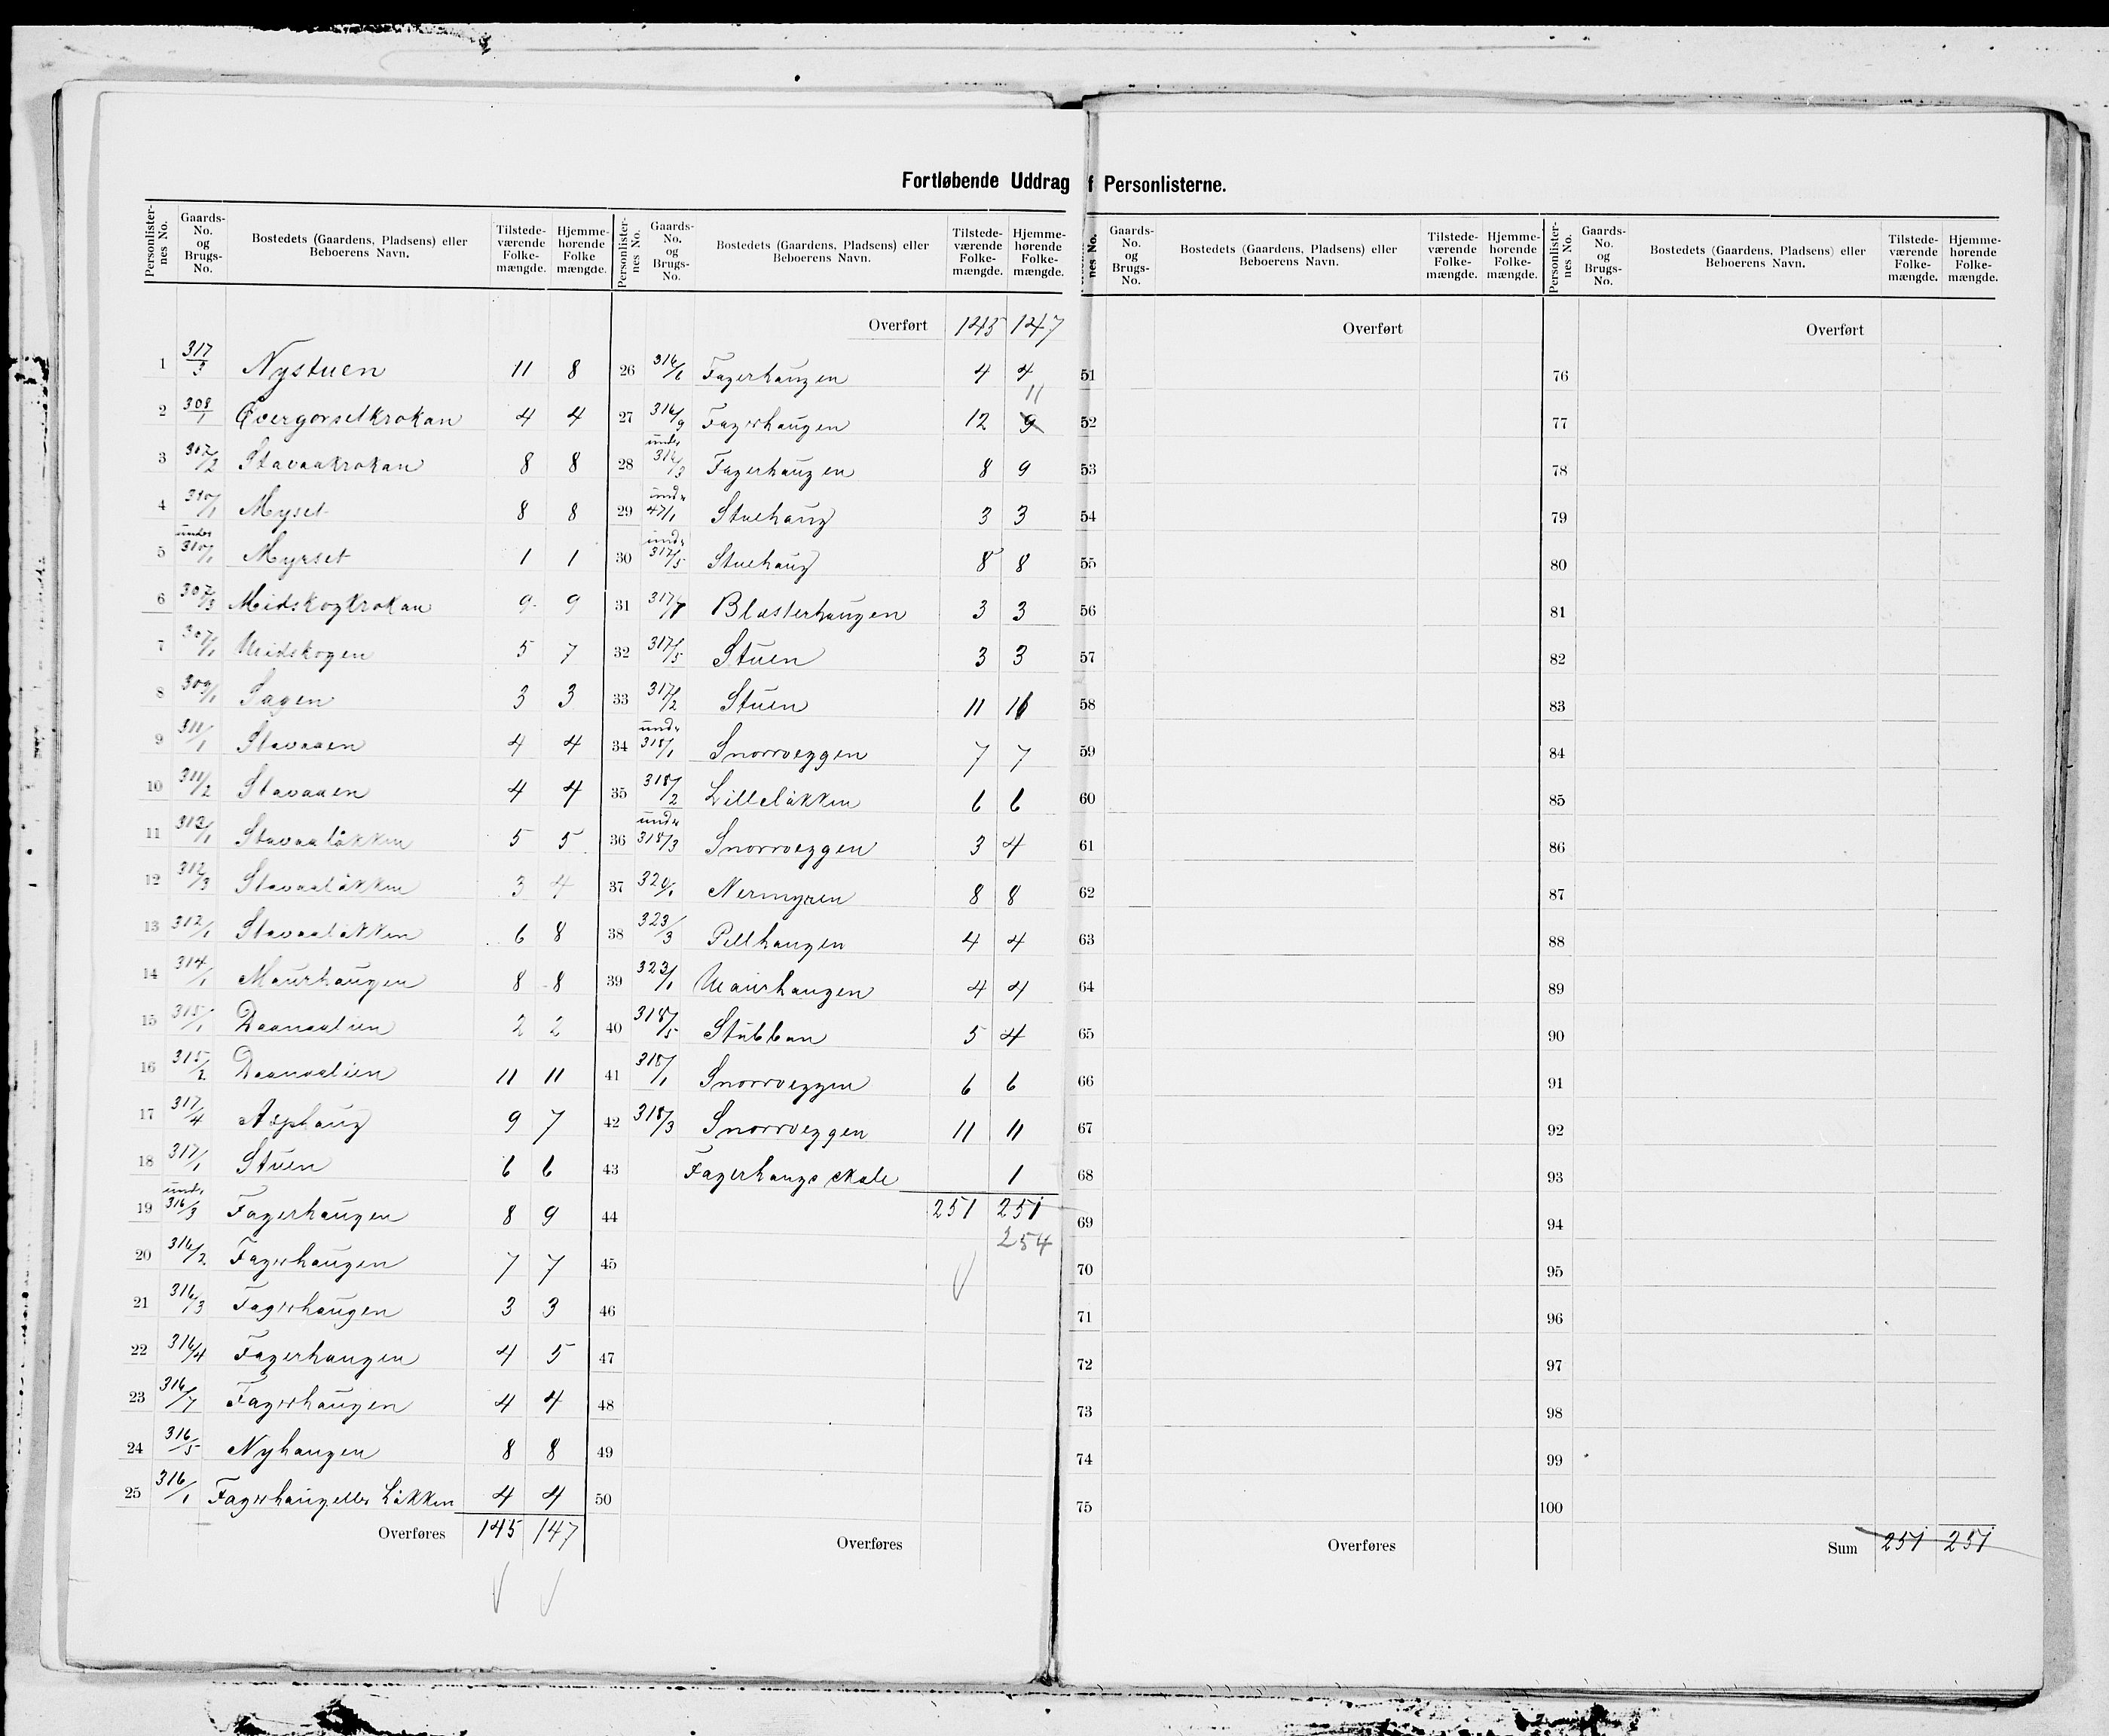 Fortløbende Uddrag f Personlisterne.
Personlister-nes No. Gaards-No. og Brugs-No. Bostedets (Gaardens, Pladsens) eller Beboerens Navn. Tilstede-værende Folke-mængde. Hjemme-hørende Folke mængde.
1 317/3 Nystuen 11 8
2 308/1 Øvergorsetkrokan 4 4
3 307/2 Stavaakrokan 8 8
4 310/1 Myset 8 8
5 under 310/1 Myrset 1 1
6 307/3 Midskogkrokan 9 9
7 307/1 Midskogen 5 7
8 309/1 Sagen 3 3
9 311/1 Stavaaen 4 4
10 311/2 Stavaaen 4 4
11 313/1 Stavaaløkken 5 5
12 312/3 Stavaaløkken 3 4
13 312/1 Stavaaløkken 6 8
14 314/1 Maurhaugen 8 8
15 315/1 Daanaalien 2 2
16 315/2 Daanaalien 11 11
17 317/4 Asphaug 9 7
18 317/1 Stuen 6 6
19 under 316/3 Fagerhaugen 8 9
20 316/2 Fagerhaugen 7 7
21 316/3 Fagerhaugen 3 3
22 316/4 Fagerhaugen 4 5
23 316/7 Fagerhaugen 4 4
24 316/5 Nyhaugen 8 8
25 316/1 Fagerhaug eller Løkken 4 4
Overføres 145 147
Personlister-nes No. Gaards-No. og Brugs-No. Bostedets (Gaardens, Pladsens) eller Beboerens Navn. Tilstede-værende Folke-mængde. Hjemme-hørende Folke-mængde.
Overført 145 147
26 316/6 Fagerhaugen 4 4
11
27 316/9 Fagerhaugen 12 9
28 under 316/3 Fagerhaugen 8 9
29 under 47/1 Stuehaug 3 3
30 under 317/5 Stuehaug 8 8
31 317/7 Blæsterhaugen 3 3
32 317/5 Stuen 3 3
33 317/2 Stuen 11 11
34 under 318/1 Snorroeggen 7 7
35 318/2 Lilleløkken 6 6
36 under 318/3 Snorroeggen 3 4
37 320/1 Nermyren 8 8
38 323/3 Pellhaugen 4 4
39 323/1 Maurhaugen 4 4
40 318/5 Stubban 5 4
41 318/1 Snorroeggen 6 6
42 318/3 Snorroeggen 11 11
43 Fagerhaugs skole 1
44 251 251
254
45
46
47
48
49
50
Overføres
nes No. Gaards-No. og Brugs-No. Bostedets (Gaardens, Pladsens) eller Beboerens Navn. Tilstede-værende Folke-mængde. Hjemme-hørende Folke-mængde.
Overført
51
52
53
54
55
56
57
58
59
60
61
62
63
64
65
66
67
68
69
70
71
72
73
74
75
Overføres
Personlister-nes No. Gaards-No. og Brugs-No. Bostedets (Gaardens, Pladsens) eller Beboerens Navn. Tilstede-værende Folke-mængde. Hjemme-hørende Folke-mængde.
Overført
76
77
78
79
80
81
82
83
84
85
86
87
88
89
90
91
92
93
94
95
96
97
98
99
100
Sum 251 251